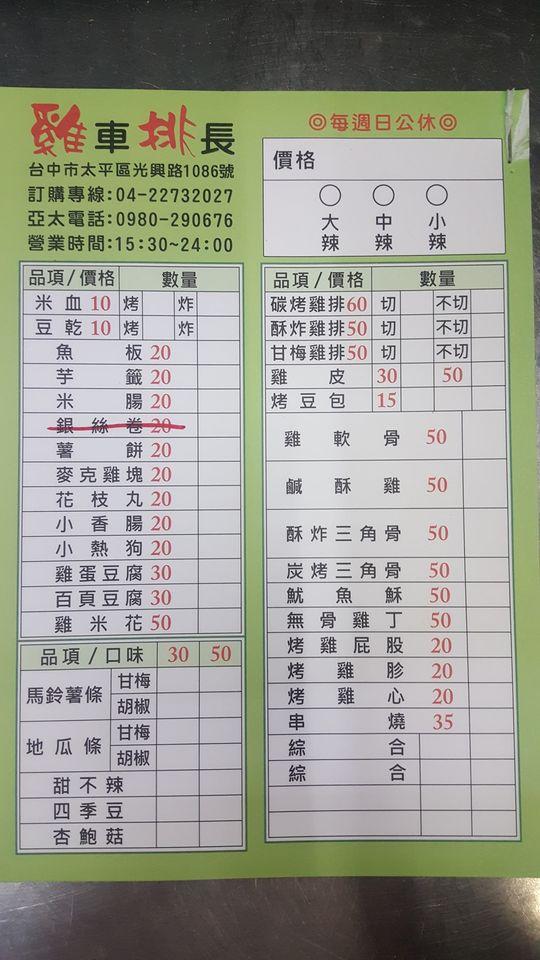 雞車排長
台中市太平區光興路1086號
訂購專線:04-22732027
亞太電話:0980-290676
營業時間:15:30~24:00
◎每週日公休◎
價格
大辣 中辣 小辣
品項/價格 數量
米血10 烤 炸
豆乾10 烤 炸
魚板20
芋籤20
米腸20
銀絲卷20
薯餅20
麥克雞塊20
花枝丸20
小香腸20
小熱狗20
雞蛋豆腐30
百頁豆腐30
雞米花50
品項/口味 30 50
馬鈴薯條 甘梅
胡椒
地瓜條 甘梅
胡椒
甜不辣
四季豆
杏鮑菇
品項/價格 數量
碳烤雞排60 切 不切
酥炸雞排50 切 不切
甘梅雞排50 切 不切
雞皮 30 50
烤豆包 15
雞軟骨 50
鹹酥雞 50
酥炸三角骨 50
炭烤三角骨 50
魷魚酥 50
無骨雞丁 50
烤雞屁股 20
烤雞胗 20
烤雞心 20
串燒 35
綜合
綜合